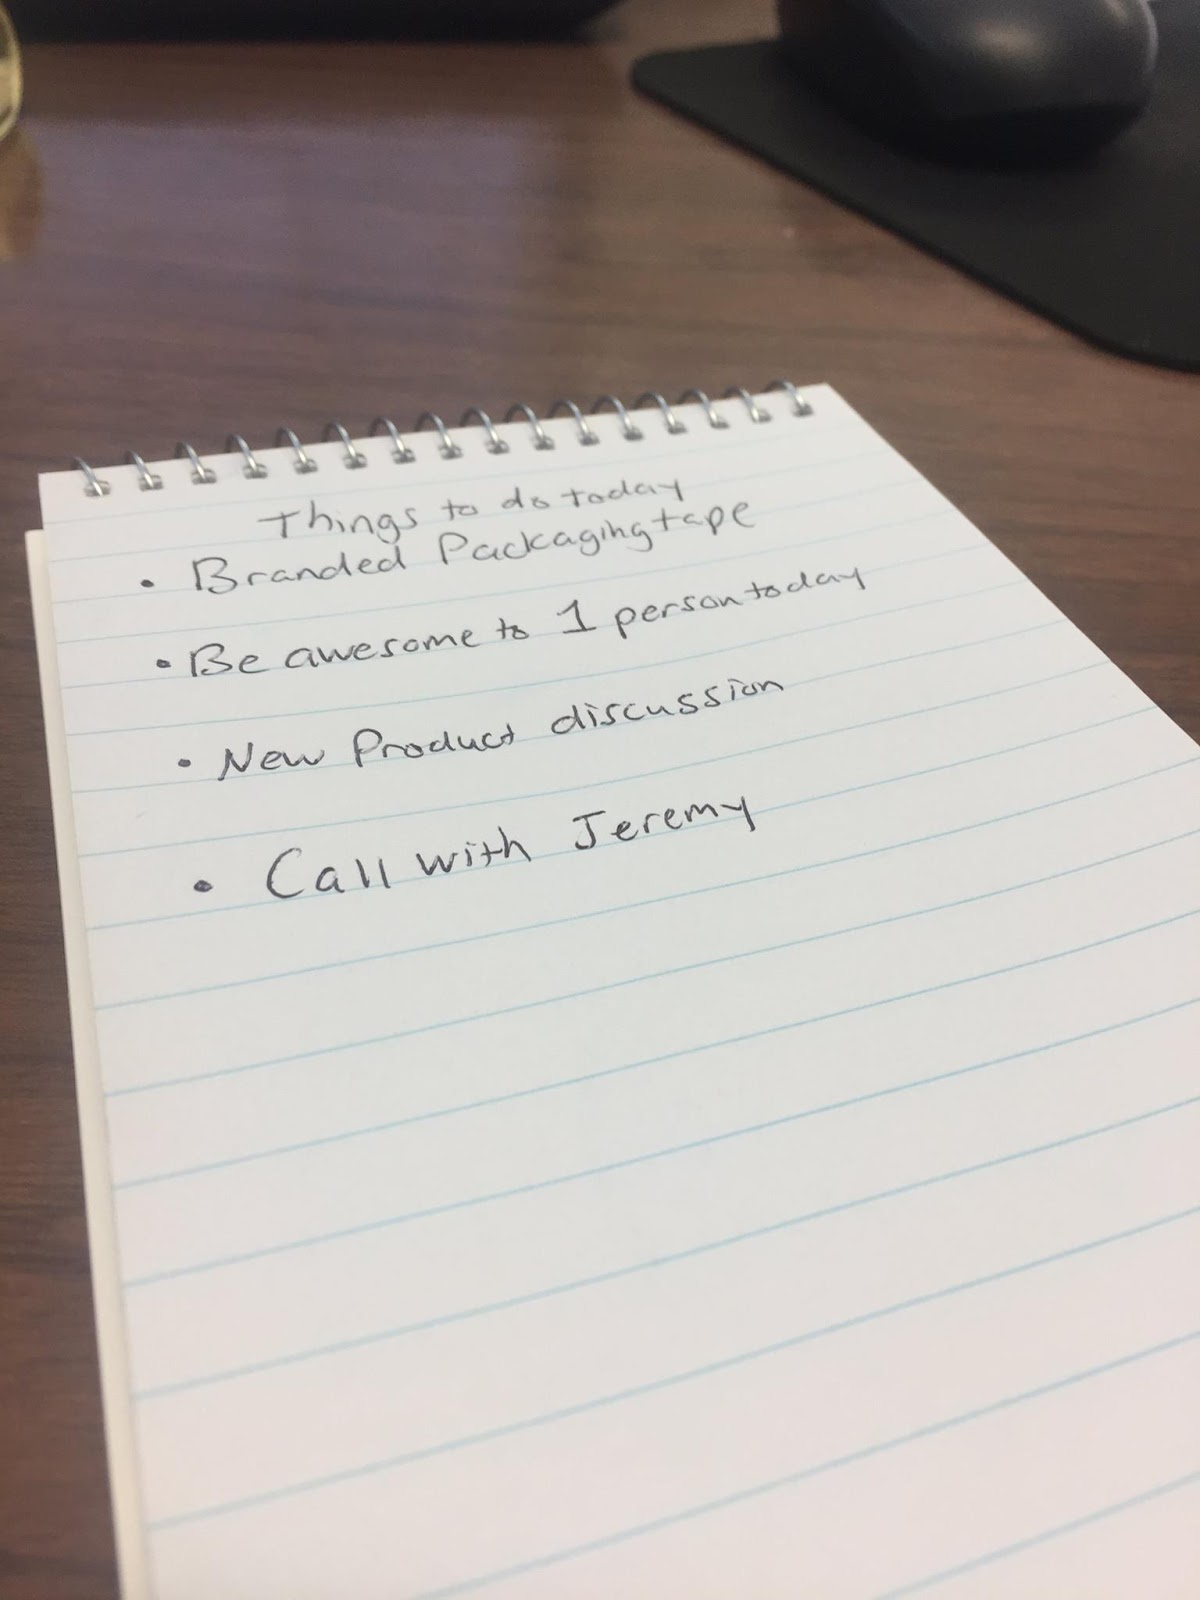 Things to do today
• Branded Packaging tape
• Be awesome to 1 person today
• New Product discussion
• Call with Jeremy